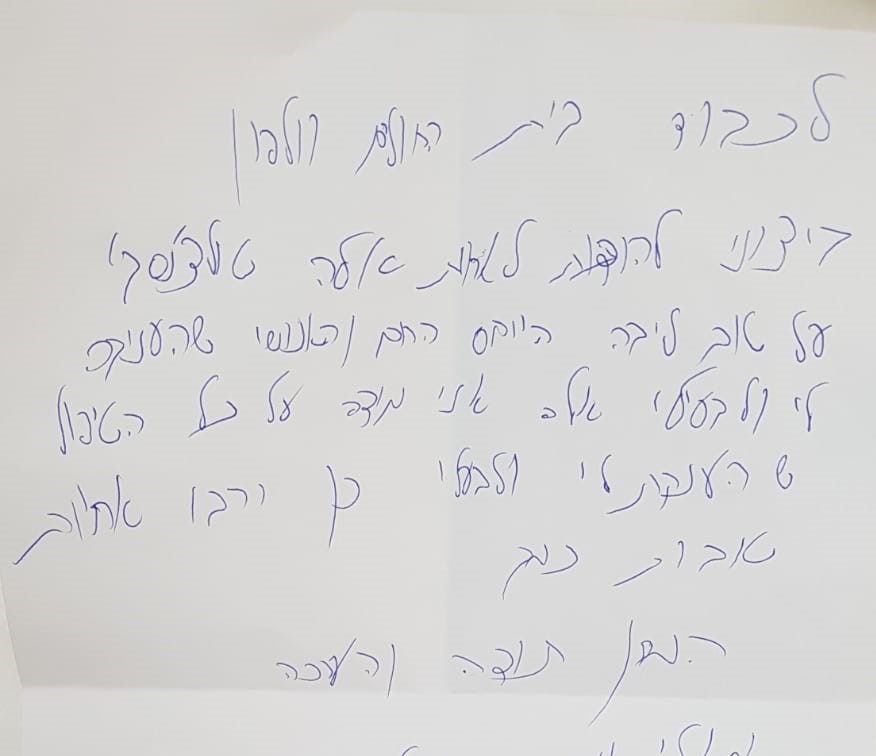 לכבוד בית החולים וולפסון
ברצוני להודות לאחות אלה
על טוב ליבה היחס החם והאנושי שהעניקה
לי ולבעלי אלה אני מודה על כל הטיפול
שהענקת לי ולבעלי כן ירבו אחיות
טובות כמוך
המון תודה והערכה